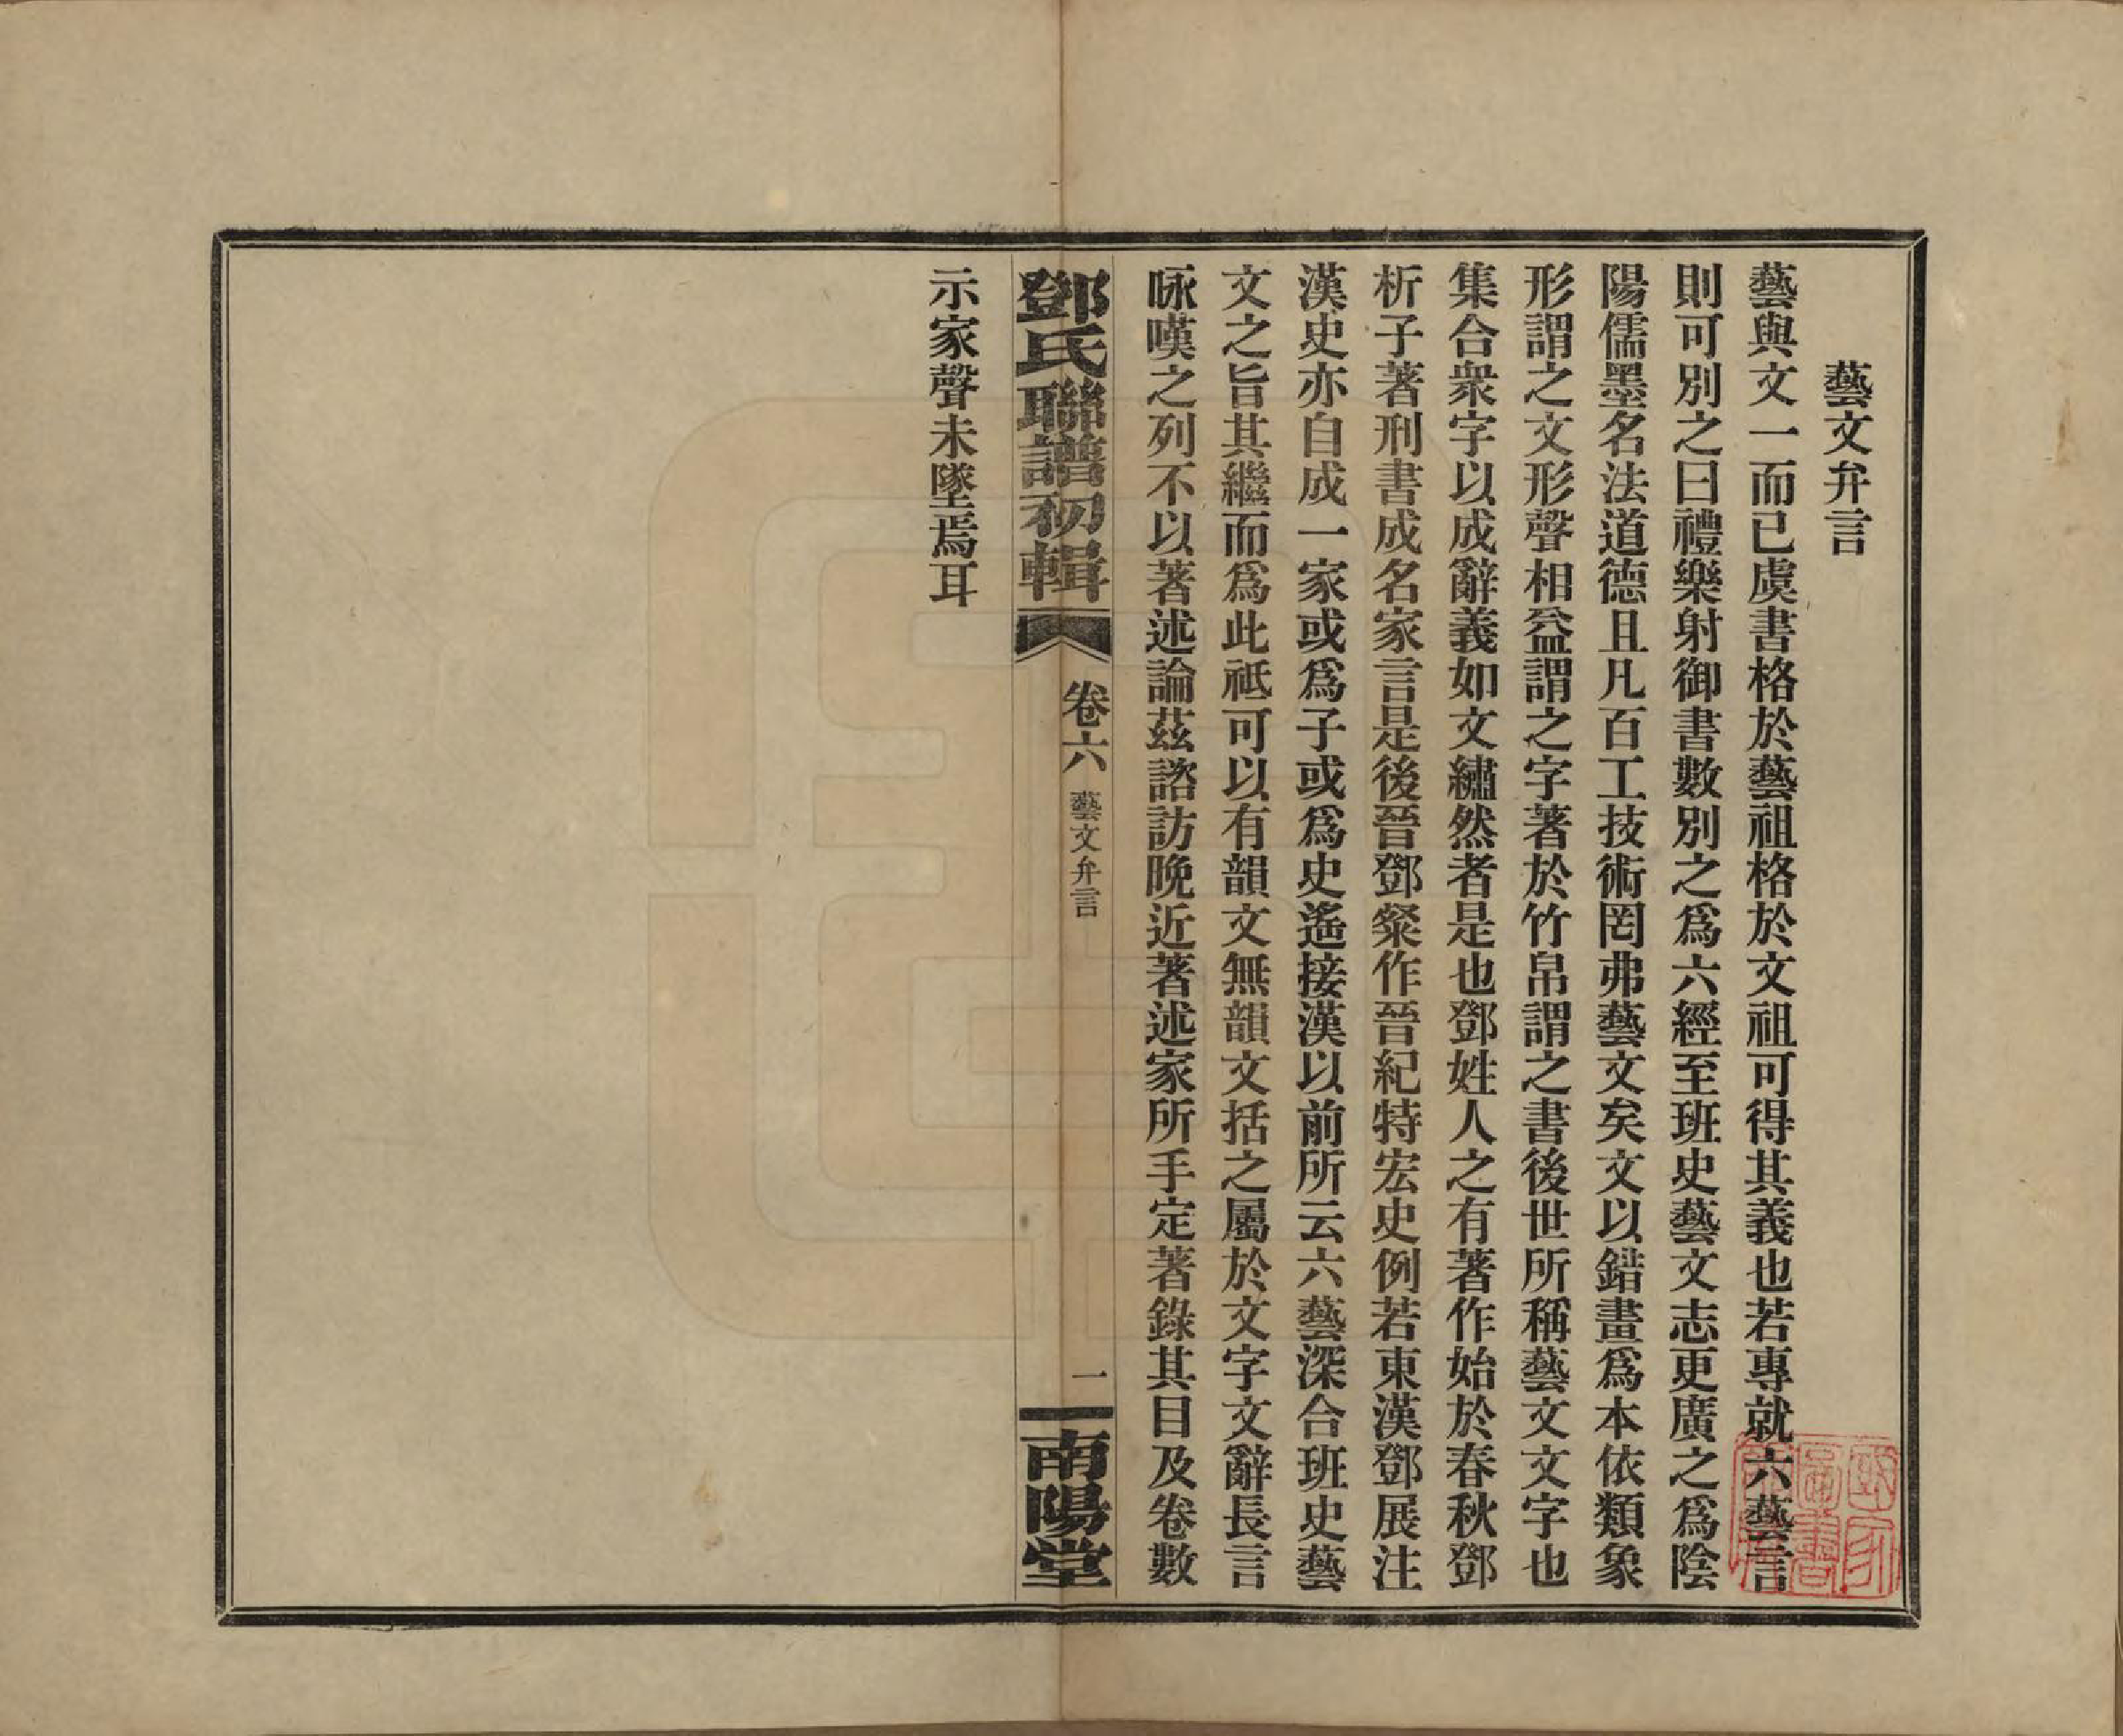 藝文弁言
藝與文一而已虞書格於藝祖格於文祖可得其義也若專就六藝言
則可別之曰禮樂射御書數別之爲六經至班史藝文志更廣之爲陰
陽儒墨名法道德且凡百工技術罔弗藝文矣文以錯畫爲本依類象
形謂之文形聲相益謂之字著於竹帛謂之書後世所稱藝文文字也
集合衆字以成辭義如文繡然者是也鄧姓人之有著作始於春秋鄧
析子著刑書成名家言是後晉鄧粲作晉紀特宏史例若東漢鄧展注
漢史亦自成一家或爲子或爲史遙接漢以前所云六藝深合班史藝
文之旨其繼而爲此祗可以有韻文無韻文括之屬於文字文辭長言
咏嘆之列不以著述論茲諮訪晚近著述家所手定著錄其目及卷數
鄧氏聯譜初輯
卷六
藝文弁言
一
南陽堂
示家聲未墜焉耳